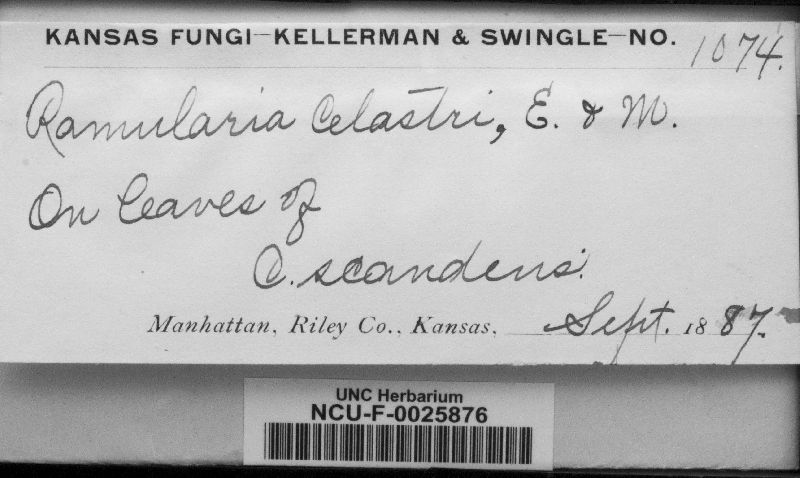 KANSAS FUNGI—KELLERMAN & SWINGLE—NO. 1074.
Ramularia Celastri, E. & M.
On leaves of
C. scandens.
Manhattan, Riley Co., Kansas, Sept. 1887.
UNC Herbarium
NCU-F-0025876